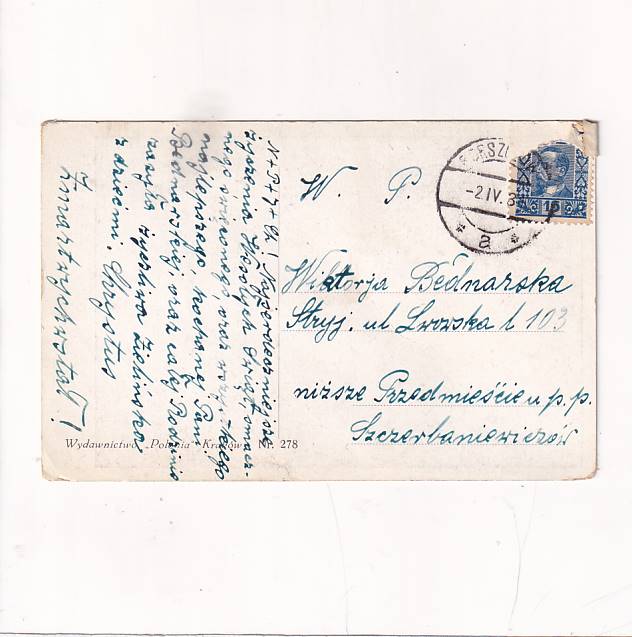 N+P+J+Ch! Najserdeczniejsze
życzenia Wesołych Świąt, smacz-
nego święconego, oraz wszystkiego
najlepszego, kochanej Pani
Bednarskiej, oraz całej Rodzinie
zasyła życzliwa Zielińska
z dziećmi. Chrystus
Zmartwychwstał!
W. P.
Wiktorja Bednarska
Stryj. ul Lwowska l 103
niższe Przedmieście u p.p.
Szczerbaniewiczów
Wydawnictwo „Polonia" Kraków Nr. 278
-2.IV.3
* a *
15